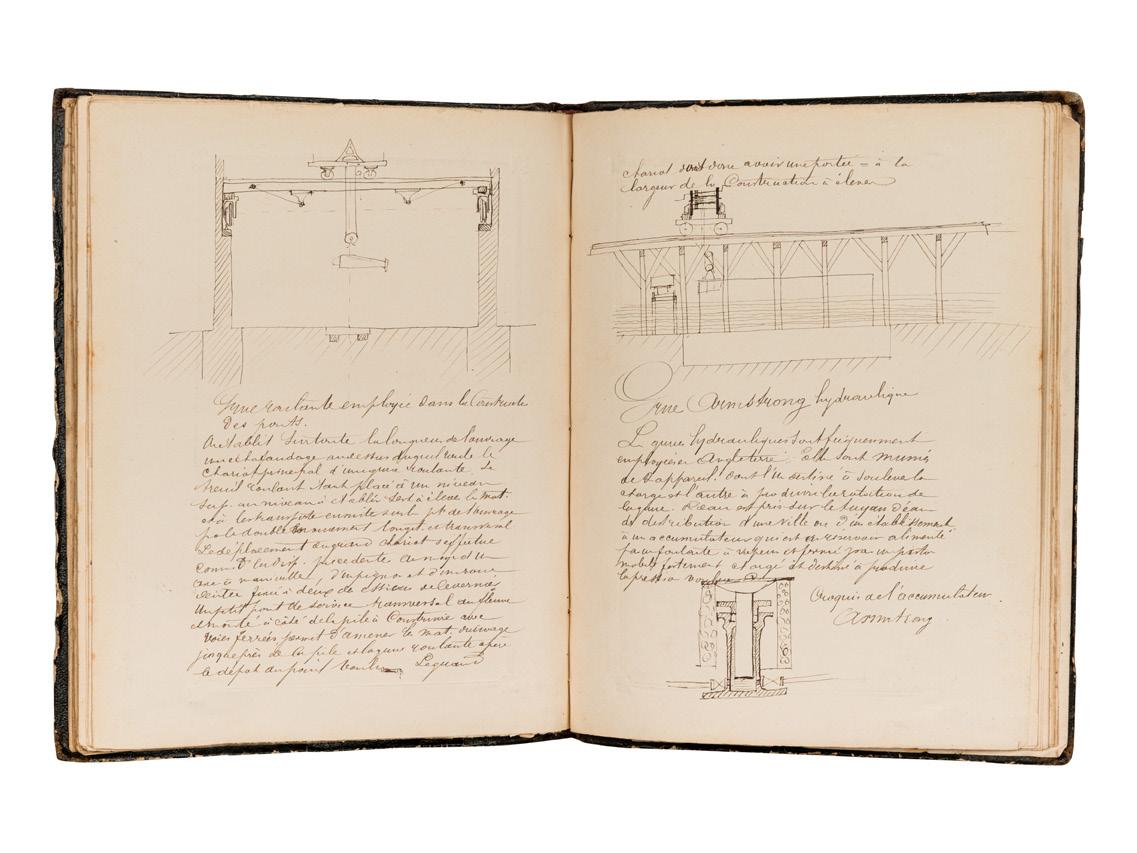 Grue roulante employée dans la Construct.
des ponts.
On établit sur toute la longueur de l'ouvrage
un echafaudage au dessus duquel roule le
chariot principal d'une grue roulante. Le
treuil roulant étant placé à un niveau
sup. au niveau à établir sert à élever le mat.
et à le transporter ensuite sur le pt de l'ouvrage
par le double mouvement longit. et transversal
Le déplacement du grand chariot s'effectue
comme ds la disp. précédente au moyen d'un
axe à manivelle, d'un pignon et d'une roue
dentée fixée à deux des essieux
Un petit pont de service transversal au fleuve
est monté à côté de la pile à Construire avec
voies ferrées permet d'amener le mat. du rivage
jusque près de la pile et la grue roulante opère
le dépôt au point voulu Le grand
chariot doit donc avoir une portée = à la
largeur de la Construction à élever
Grue Armstrong hydraulique
Les grues hydrauliques sont fréquemment
employées en Angleterre. Elles sont munies
de 2 appareils dont l'un destiné à soulever la
charge et l'autre à produire la rotation de
la grue. L'eau est prise sur le tuyau d'eau
de distribution d'une ville ou d'un établissement
à un accumulateur qui est un réservoir alimenté
par une foulante à vapeur et formé par un piston
mobile fortement chargé et destiné à produire
la pression voulue
Croquis de l'accumulateur
Armstrong.